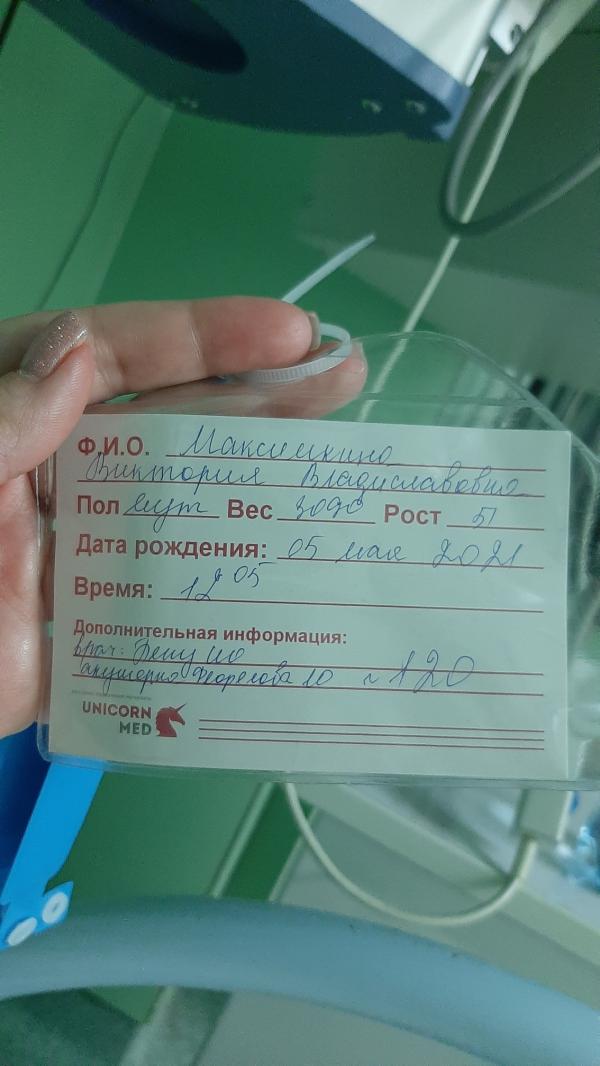 Ф.И.О. Максимкина
Виктория Владиславовна
Пол муж Вес 3090 Рост 51
Дата рождения: 05 мая 2021
Время: 12 05
Дополнительная информация:
врач:
акушерка 10 120
UNICORN
MED